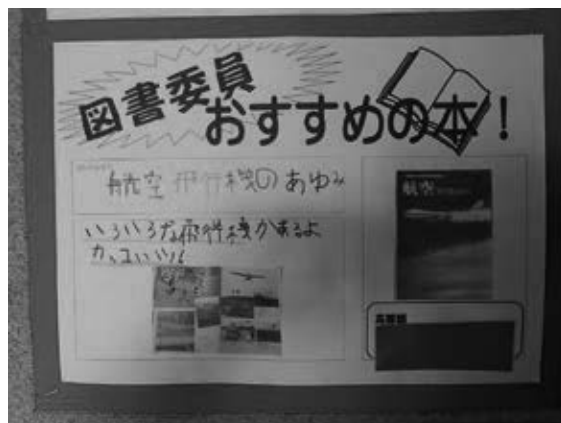 図書委員
おすすめの本！
航空 飛行機のあゆみ
いろいろな飛行機があるよ
カッコいい！
航空
高等部